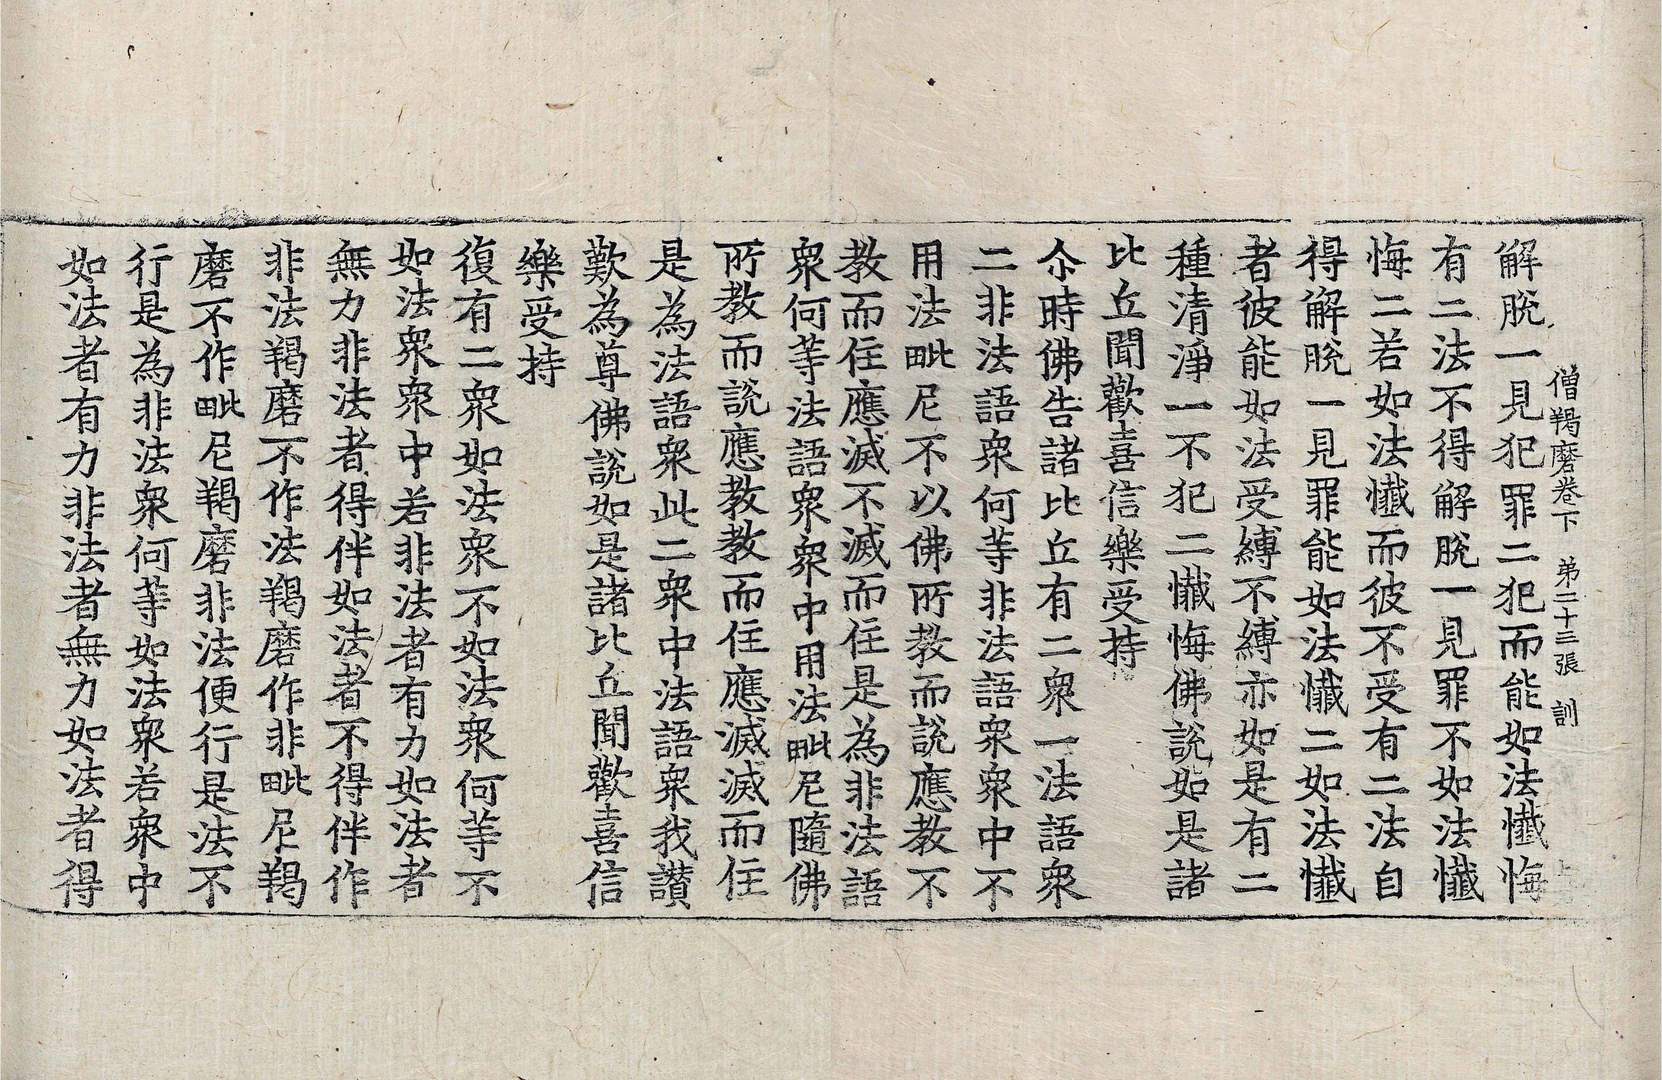 僧羯磨卷下 第二十三張 訓
解脫一見犯罪二犯而能如法懺悔
有二法不得解脫一見罪不如法懺
悔二若如法懺而彼不受有二法自
得解脫一見罪能如法懺二如法懺
者彼能如法受縛不縛亦如是有二
種清淨一不犯二懺悔佛說如是諸
比丘聞歡喜信樂受持
尒時佛告諸比丘有二衆一法語衆
二非法語衆何等非法語衆衆中不
用法毗尼不以佛所教而說應教不
教而住應滅不滅而住是為非法語
衆何等法語衆衆中用法毗尼隨佛
所教而說應教教而住應滅滅而住
是為法語衆此二衆中法語衆我讃
歎為尊佛說如是諸比丘聞歡喜信
樂受持
復有二衆如法衆不如法衆何等不
如法衆衆中若非法者有力如法者
無力非法者得伴如法者不得伴作
非法羯磨不作法羯磨作非毗尼羯
磨不作毗尼羯磨非法便行是法不
行是為非法衆何等如法衆若衆中
如法者有力非法者無力如法者得